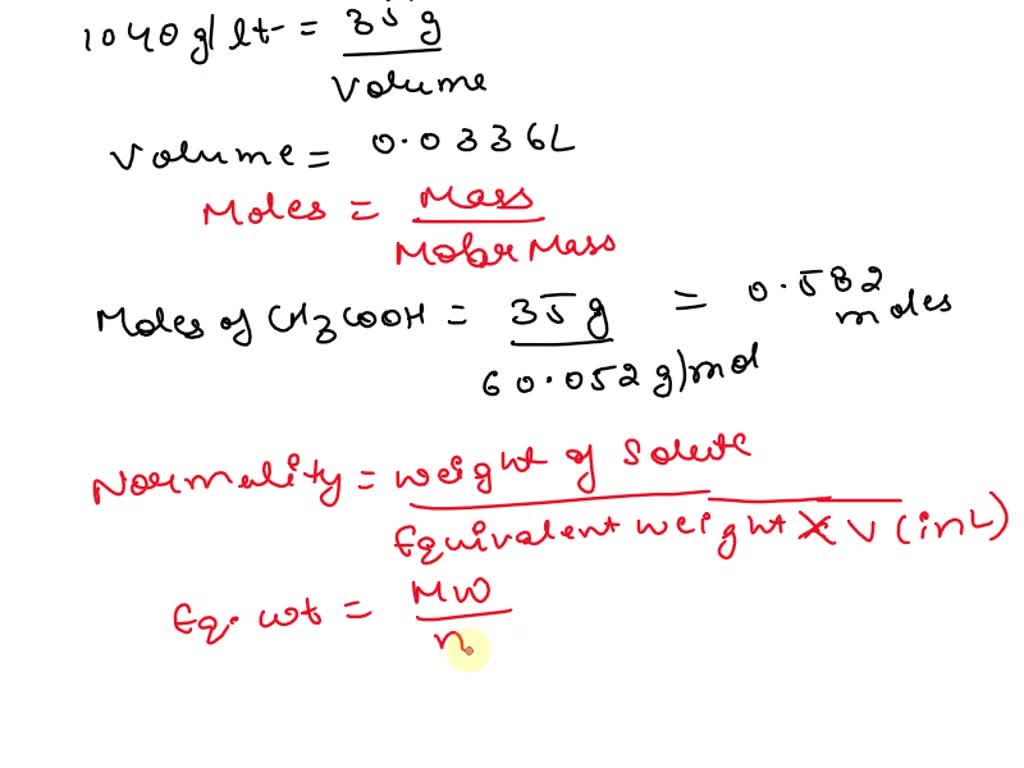 1040 g/lt = 35 g
Volume
Volume = 0.0336L
Moles = Mass
Molar Mass
Moles of CH3COOH = 35 g = 0.582 moles
60.052 g/mol
Normality = weight of Solute
Equivalent weight X V (in L)
Eq. wt = MW
n